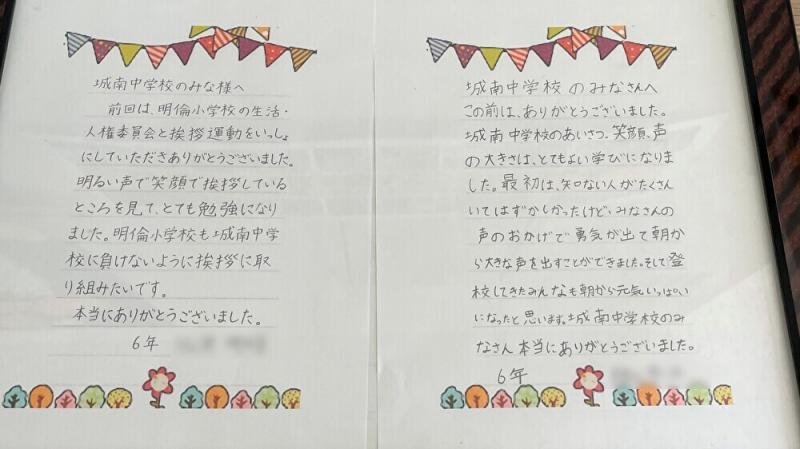 城南中学校のみな様へ
前回は、明倫小学校の生活・
人権委員会と挨拶運動をいっしょ
にしていただきありがとうございました。
明るい声で笑顔で挨拶している
ところを見て、とても勉強になり
ました。明倫小学校も城南中学
校に負けないように挨拶に取
り組みたいです。
本当にありがとうございました。
6年
城南中学校のみなさんへ
この前は、ありがとうございました。
城南中学校のあいさつ、笑顔、声
の大きさは、とてもよい学びになりま
した。最初は、知らない人がたくさん
いてはずかしかったけど、みなさんの
声のおかげで勇気が出て朝か
ら大きな声を出すことができました。そして登
校してきたみんなも朝から元気いっぱい
になったと思います。城南中学校のみ
なさん本当にありがとうございました。
6年